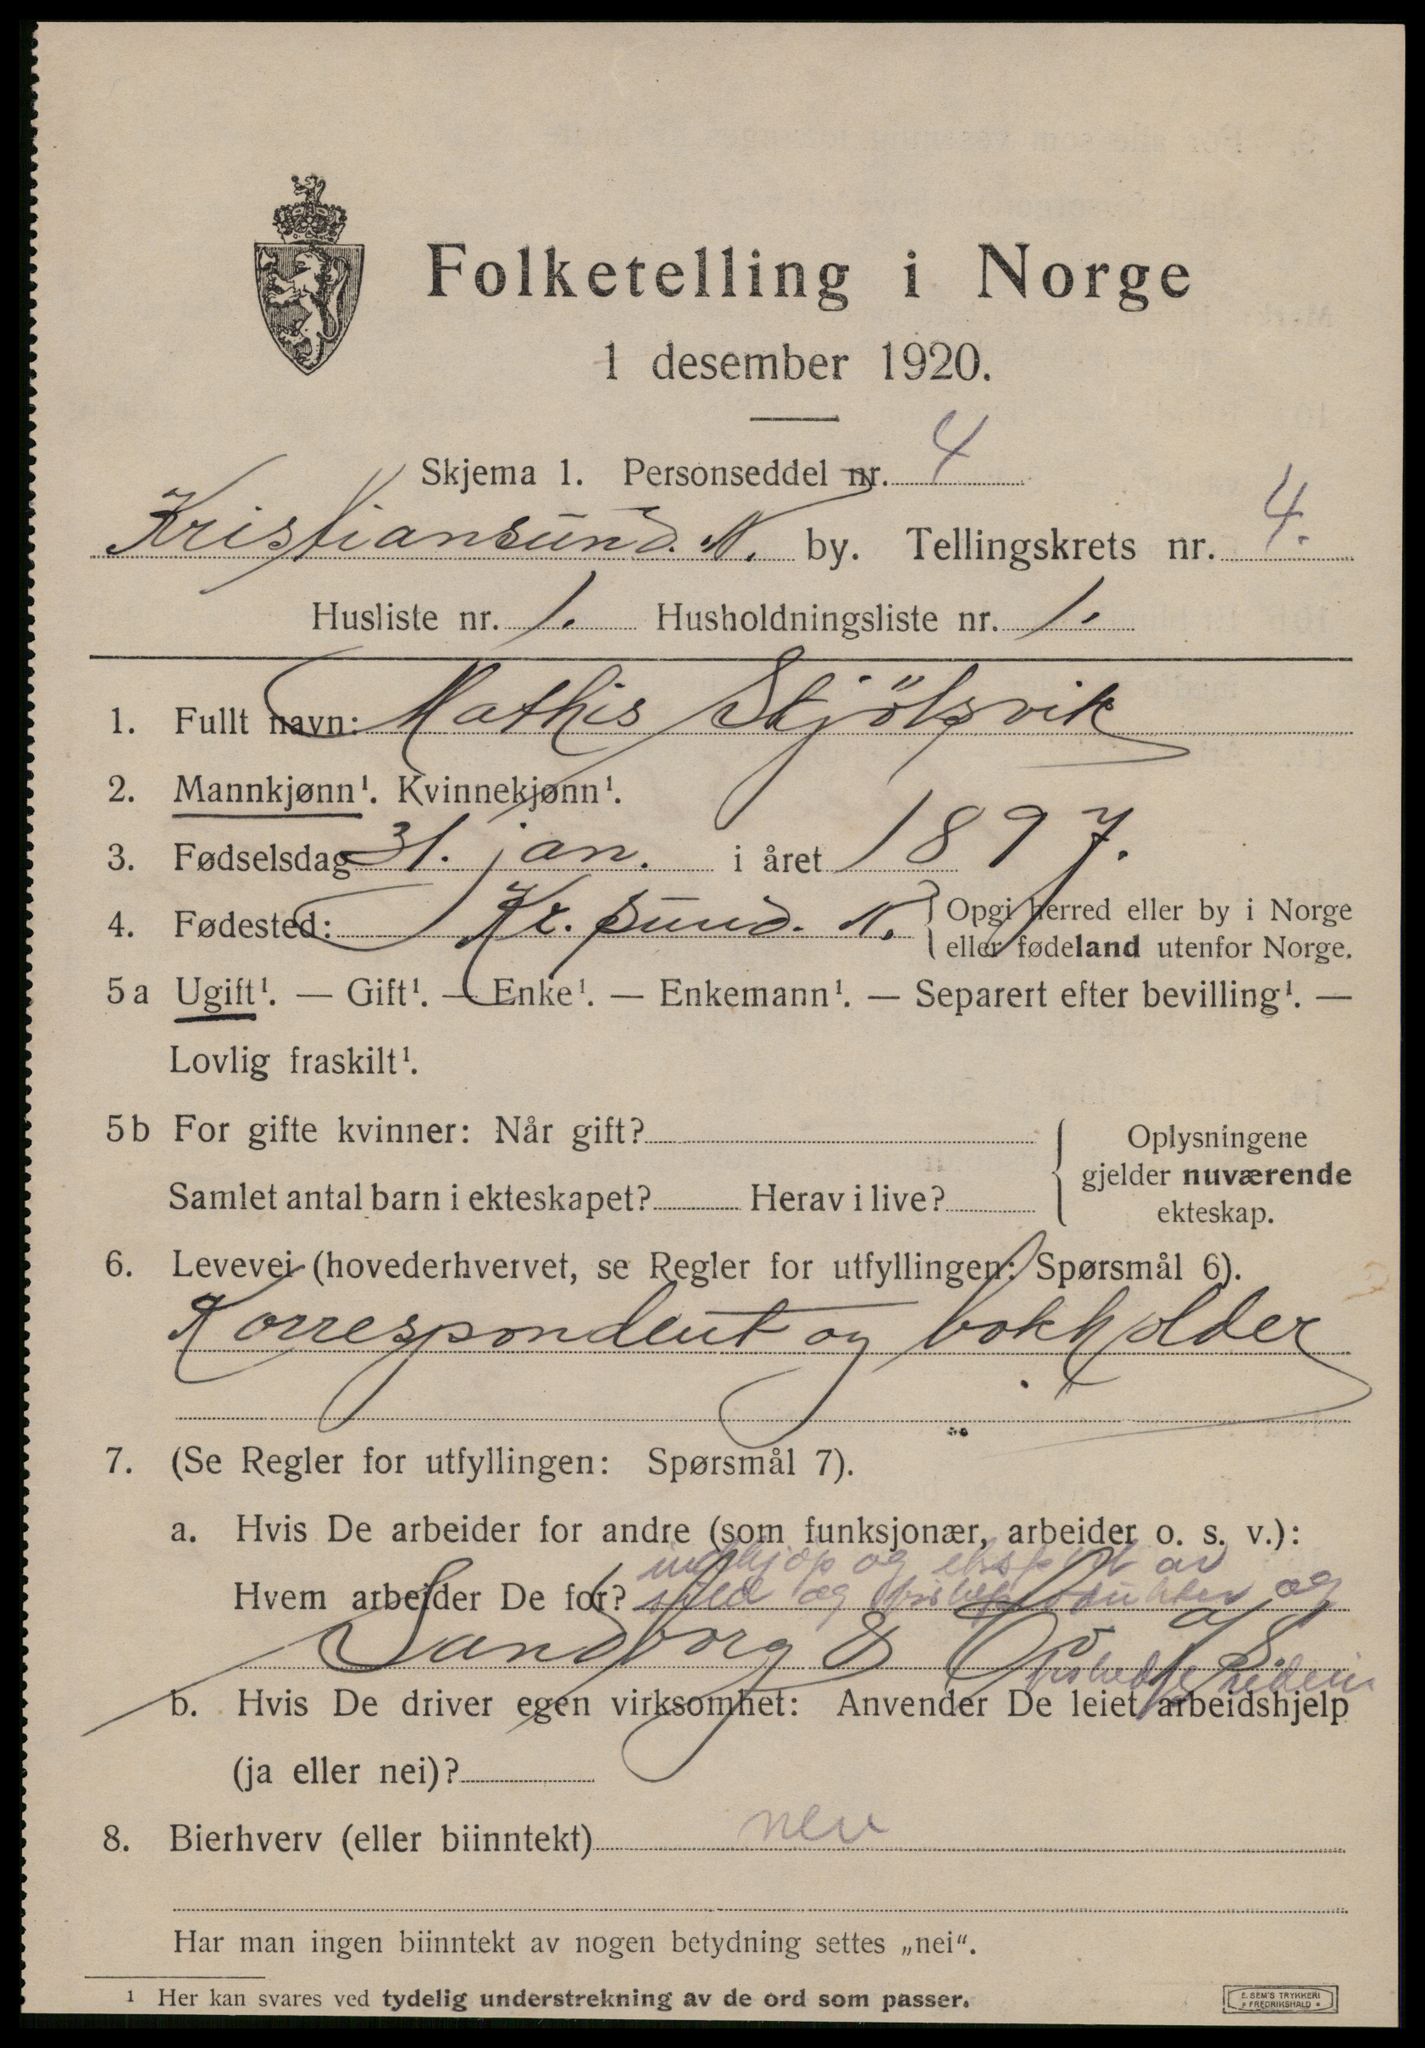 Folketelling i Norge
1 desember 1920.
Skjema 1. Personseddel nr. 4
Kristiansund. N. by. Tellingskrets nr. 4.
Husliste nr. 1. Husholdningsliste nr. 1.
1. Fullt navn: Mathis Skjölsvik
2. Mannkjønn¹. Kvinnekjønn¹.
3. Fødselsdag 31. jan. i året 1897.
4. Fødested: Kr.sund. N. Opgi herred eller by i Norge
eller fødeland utenfor Norge.
5a Ugift¹. — Gift¹. — Enke¹. — Enkemann¹. — Separert efter bevilling¹. —
Lovlig fraskilt¹.
5b For gifte kvinner: Når gift?
Samlet antal barn i ekteskapet? Herav i live?
Oplysningene
gjelder nuværende
ekteskap.
6. Levevei (hovederhvervet, se Regler for utfyllingen: Spørsmål 6).
Korrespondent og bokholder
7. (Se Regler for utfyllingen: Spørsmål 7).
a. Hvis De arbeider for andre (som funksjonær, arbeider o. s. v.):
indkjøp og eksport av
Hvem arbeider De for? sild og og
Sandborg & Co A/S.
b. Hvis De driver egen virksomhet: Anvender De leiet arbeidshjelp
(ja eller nei)?
8. Bierhverv (eller biinntekt) nei
Har man ingen biinntekt av nogen betydning settes „nei".
¹ Her kan svares ved tydelig understrekning av de ord som passer.
E. SEM'S TRYKKERI
FREDRIKSHALD